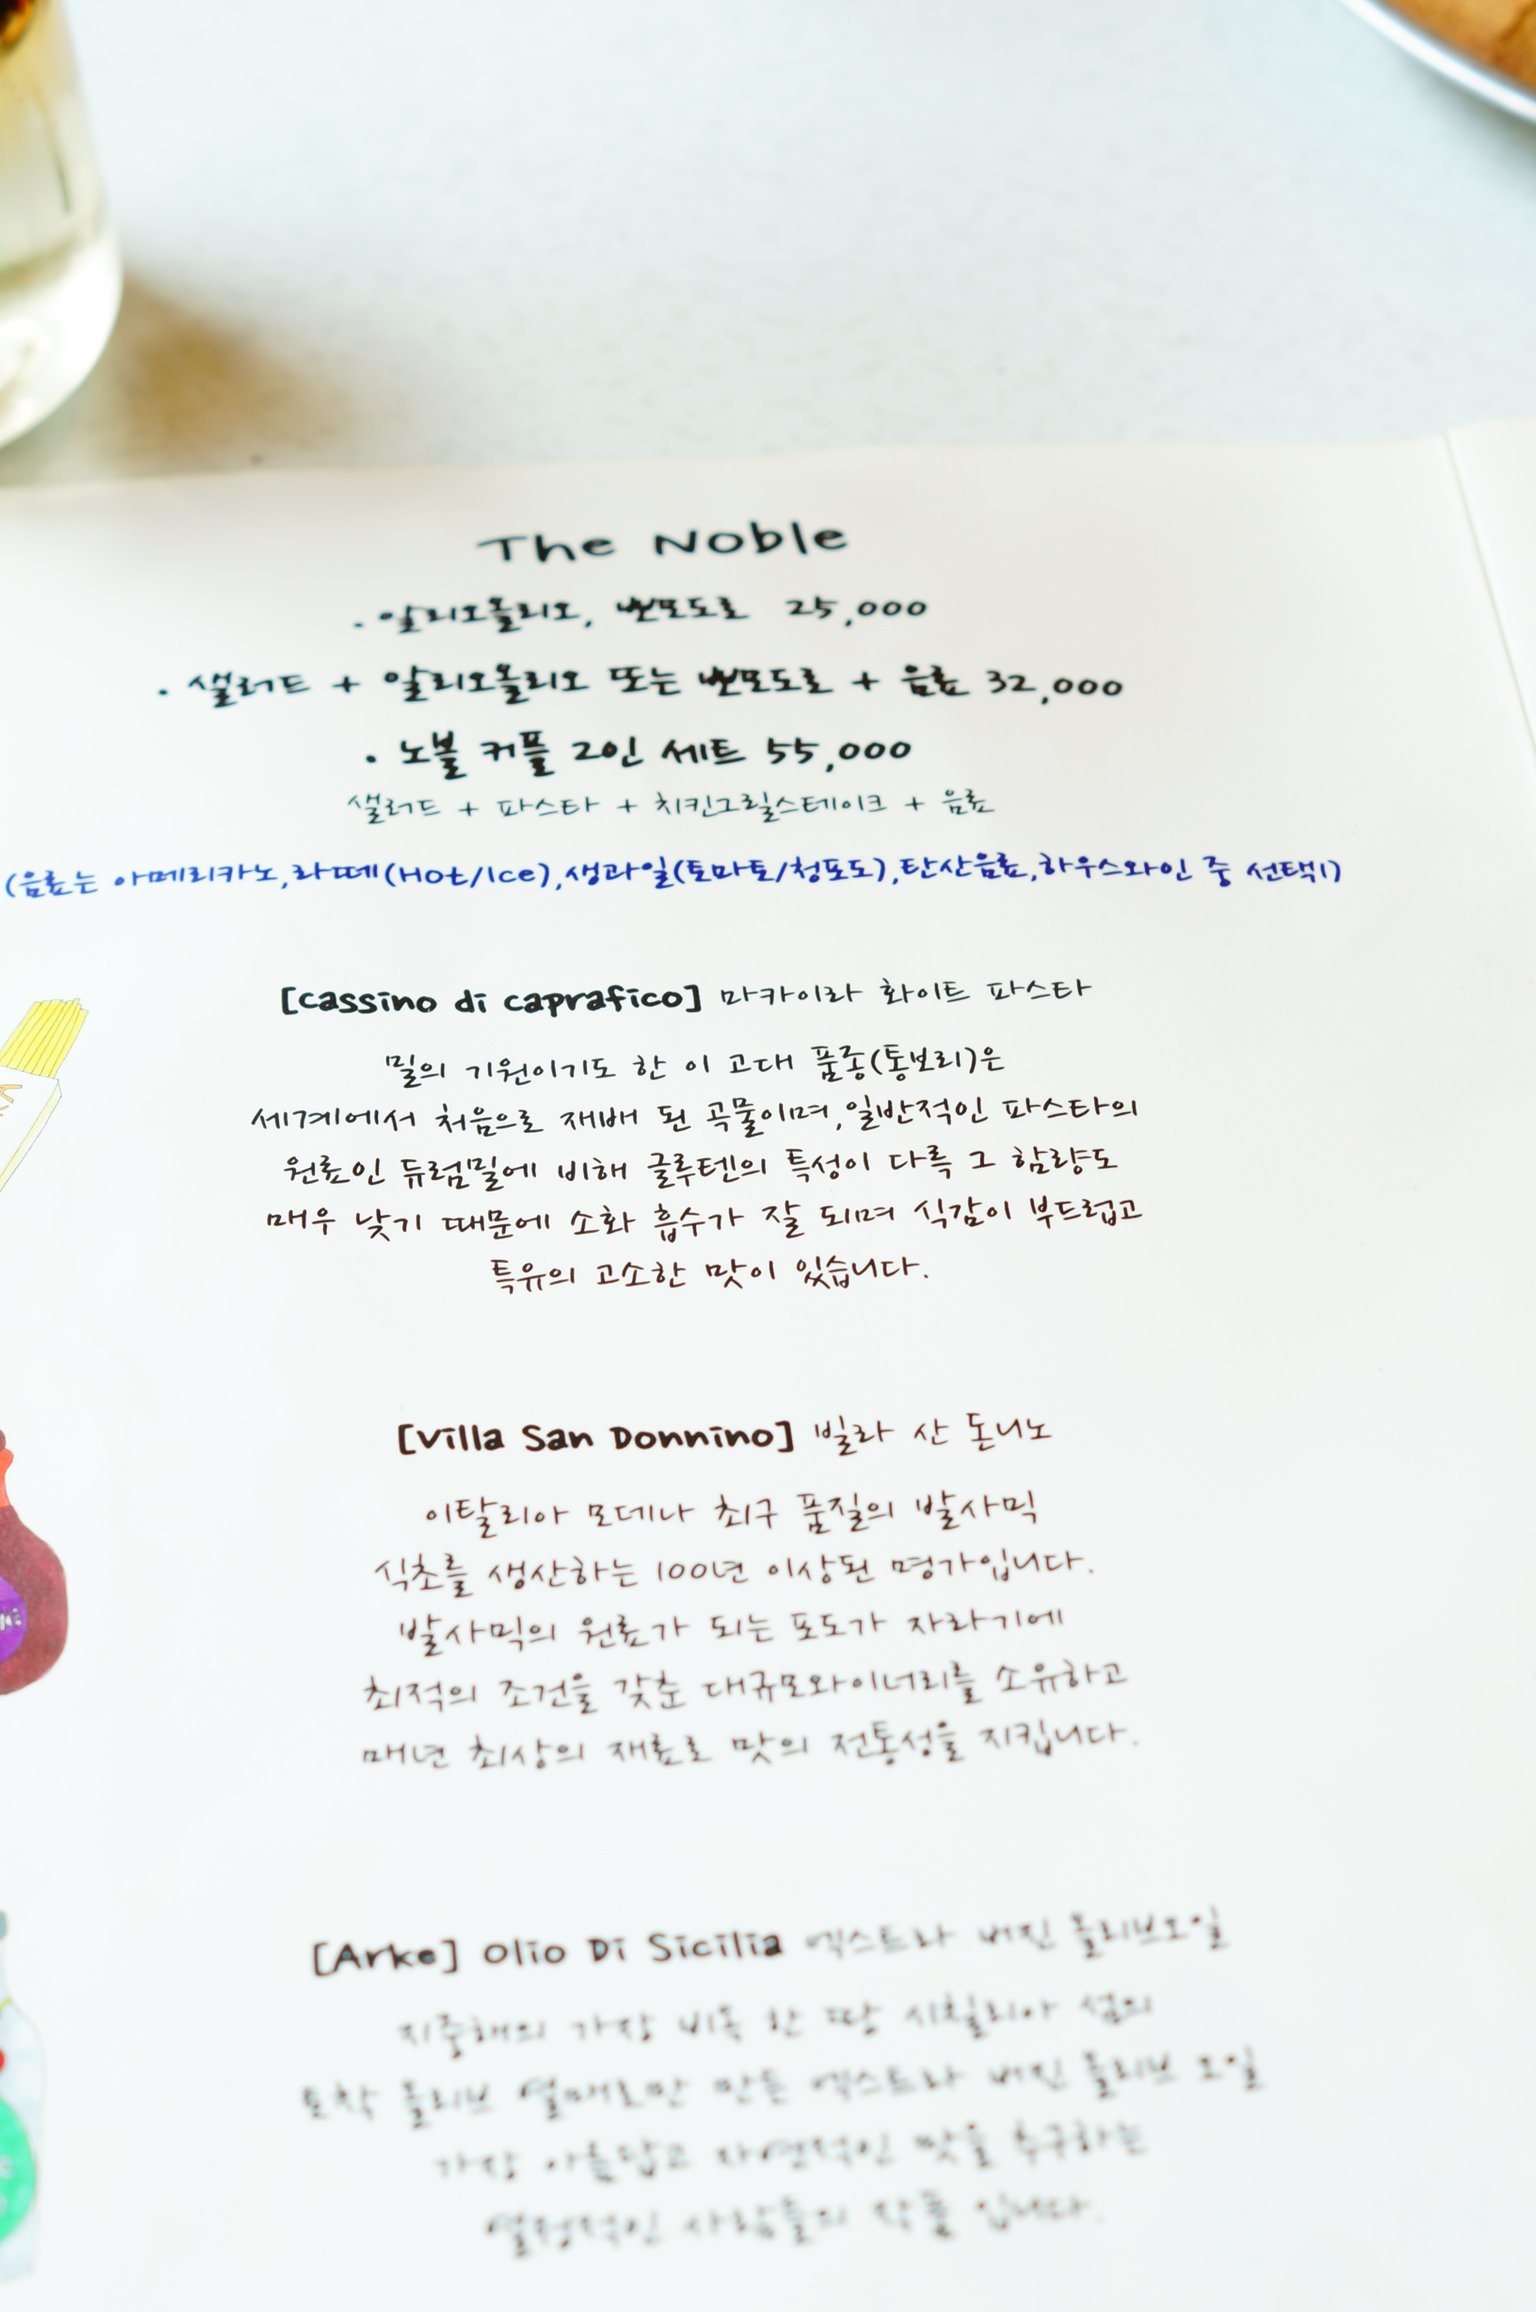 The Noble
. 알리오올리오, 뽀모도로 25,000
. 샐러드 + 알리오올리오 또는 뽀모도로 + 음료 32,000
. 노블 커플 2인 세트 55,000
샐러드 + 파스타 + 치킨그릴스테이크 + 음료
(음료는 아메리카노,라떼(Hot/Ice),생과일(토마토/청포도),탄산음료,하우스와인 중 선택1)
[cassino di caprafico] 마카이라 화이트 파스타
밀의 기원이기도 한 이 고대 품종(통보리)은
세계에서 처음으로 재배 된 곡물이며,일반적인 파스타의
원료인 듀럼밀에 비해 글루텐의 특성이 다륵 그 함량도
매우 낮기 때문에 소화 흡수가 잘 되며 식감이 부드럽고
특유의 고소한 맛이 있습니다.
[Villa San Donnino] 빌라 산 돈니노
이탈리아 모데나 최구 품질의 발사믹
식초를 생산하는 100년 이상된 명가입니다.
발사믹의 원료가 되는 포도가 자라기에
최적의 조건을 갖춘 대규모와이너리를 소유하고
매년 최상의 재료로 맛의 전통성을 지킵니다.
[Arke] Olio Di Sicilia 엑스트라 버진 올리브오일
지중해의 가장 비옥 한 땅 시칠리아 섬의
토착 올리브 열매로만 만든 엑스트라 버진 올리브 오일
가장 아름답고 자연적인 맛을 추구하는
열정적인 사람들의 작품 입니다.